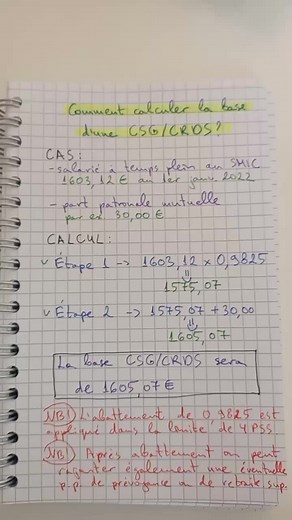 Comment calculer la base
d'une CSG/CRDS?
CAS:
- salarié à temps plein au SMIC
1603,12 € au 1er janv 2022
- part patronale mutuelle
par ex 30,00 €
CALCUL:
v Étape 1 -> 1603,12 x 0,9825
=
1575,07
v Étape 2 -> 1575,07 + 30,00
=
1605,07
La base CSG/CRDS sera
de 1605,07 €
NB! L'abattement de 0,9825 est
appliqué dans la limite de 4 PSS.
NB! Après abattement on peut
rajouter également une éventuelle
p.p. de prévoyance ou de retraite sup.